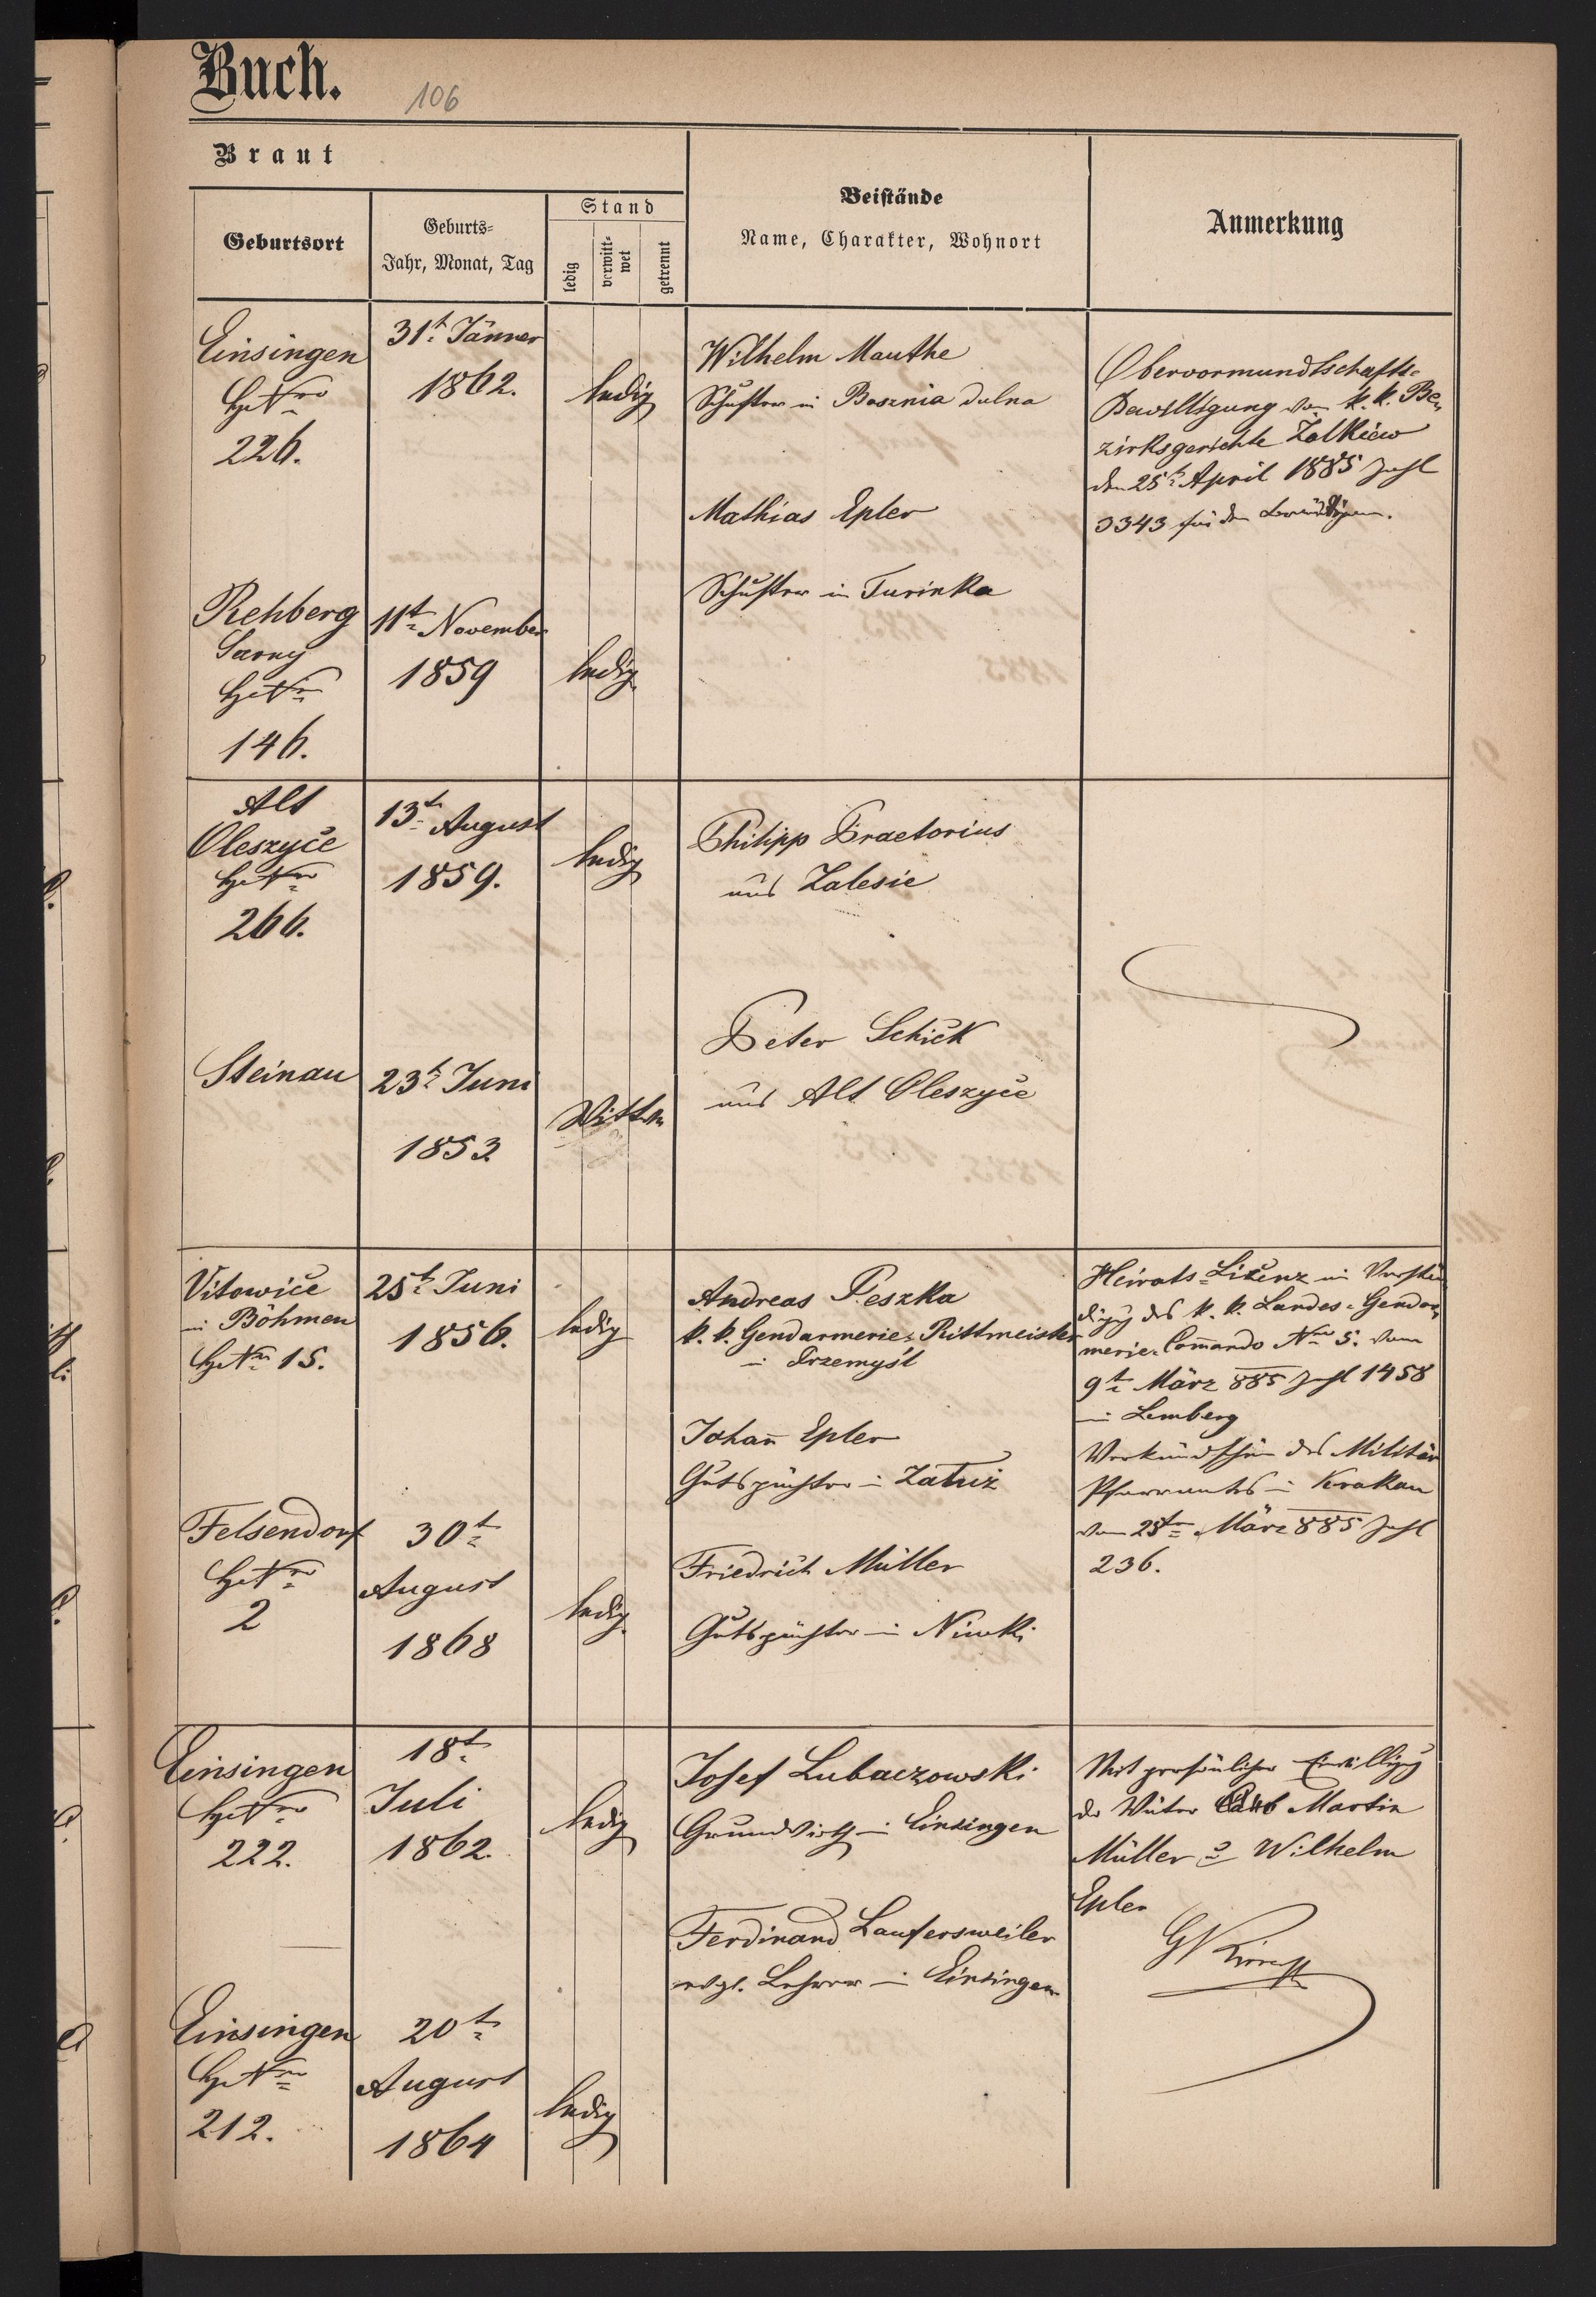 Buch.
106
Braut
Beistände
Name, Charakter, Wohnort
Anmerkung
Geburtsort
Geburts-
Jahr, Monat, Tag
Stand
ledig
verwitt-
wet
getrennt
Einsingen
HsNro
226.
31t Jänner
1862.
ledig
Wilhelm Mauthe
Schuster in Bosznia dulna
Mathias Epler
Schuster in Turinka
Obervormundtschafts-
Bewilligung vom k. k. Be-
zirksgerichte Żolkiew
den 25t April 1885 Zahl
3343 für den
Rehberg
Sarny
HsNro
146.
11t November
1859
ledig
Alt
Oleszyce
HsNro
266.
13t August
1859.
ledig
Philipp Praetorius
aus Zalesie
Peter Schick
aus Alt Oleszyce
Steinau
23t Juni
1853
Witwe
Vitowice
in Böhmen
HsNro 15.
25t Juni
1856.
ledig
Andreas Peszka
k. k. Gendarmerie-Rittmeister
in Przemyśl
Johan̄ Epler
Gutspächter in Zatuż
Friedrich Müller
Gutspächter in Niwki
Heirats-Lizenz
des k. k. Landes-Gendar-
merie-Com̄ando Nro 5. vom
9t März 885 Zahl 1458
in Lemberg
Verkündschein des Militär
Pfarramtes in Krakau
vom 25ten März 885 Zahl
236.
Felsendorf
HsNro
2
30t
August
1868
ledig
Einsingen
HsNro
222.
18t
Juli
1862.
ledig
Josef Lubaczowski
Grundwirth in Einsingen
Ferdinand Laufersweiler
evgl. Lehrer in Einsingen
Mit persönlicher Einwilligung
der Väter Martin
Müller u Wilhelm
Epler
Einsingen
HsNro
212.
20t
August
1864
ledig